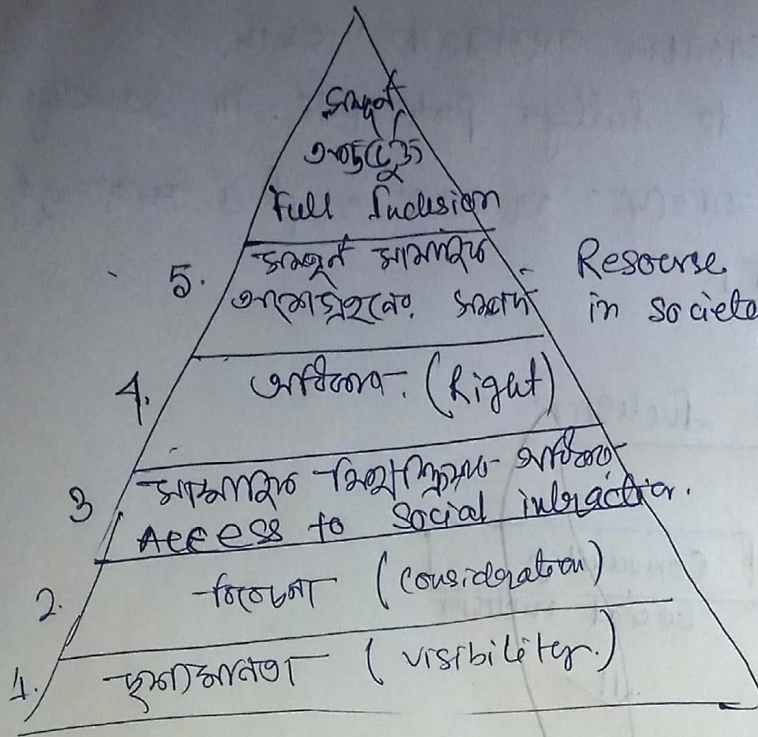 সম্পূর্ণ
অন্তর্ভুক্তি
Full Inclusion
5. সম্পূর্ণ সামাজিক
অংশগ্রহণের সম্পদ
Resourse
in societe
4. অধিকার (Right)
3 সামাজিক মিথস্ক্রিয়ায় অধিকার
Access to Social intraction.
2. বিবেচনা (consideration)
1. দৃশ্যমানতা (visibility.)